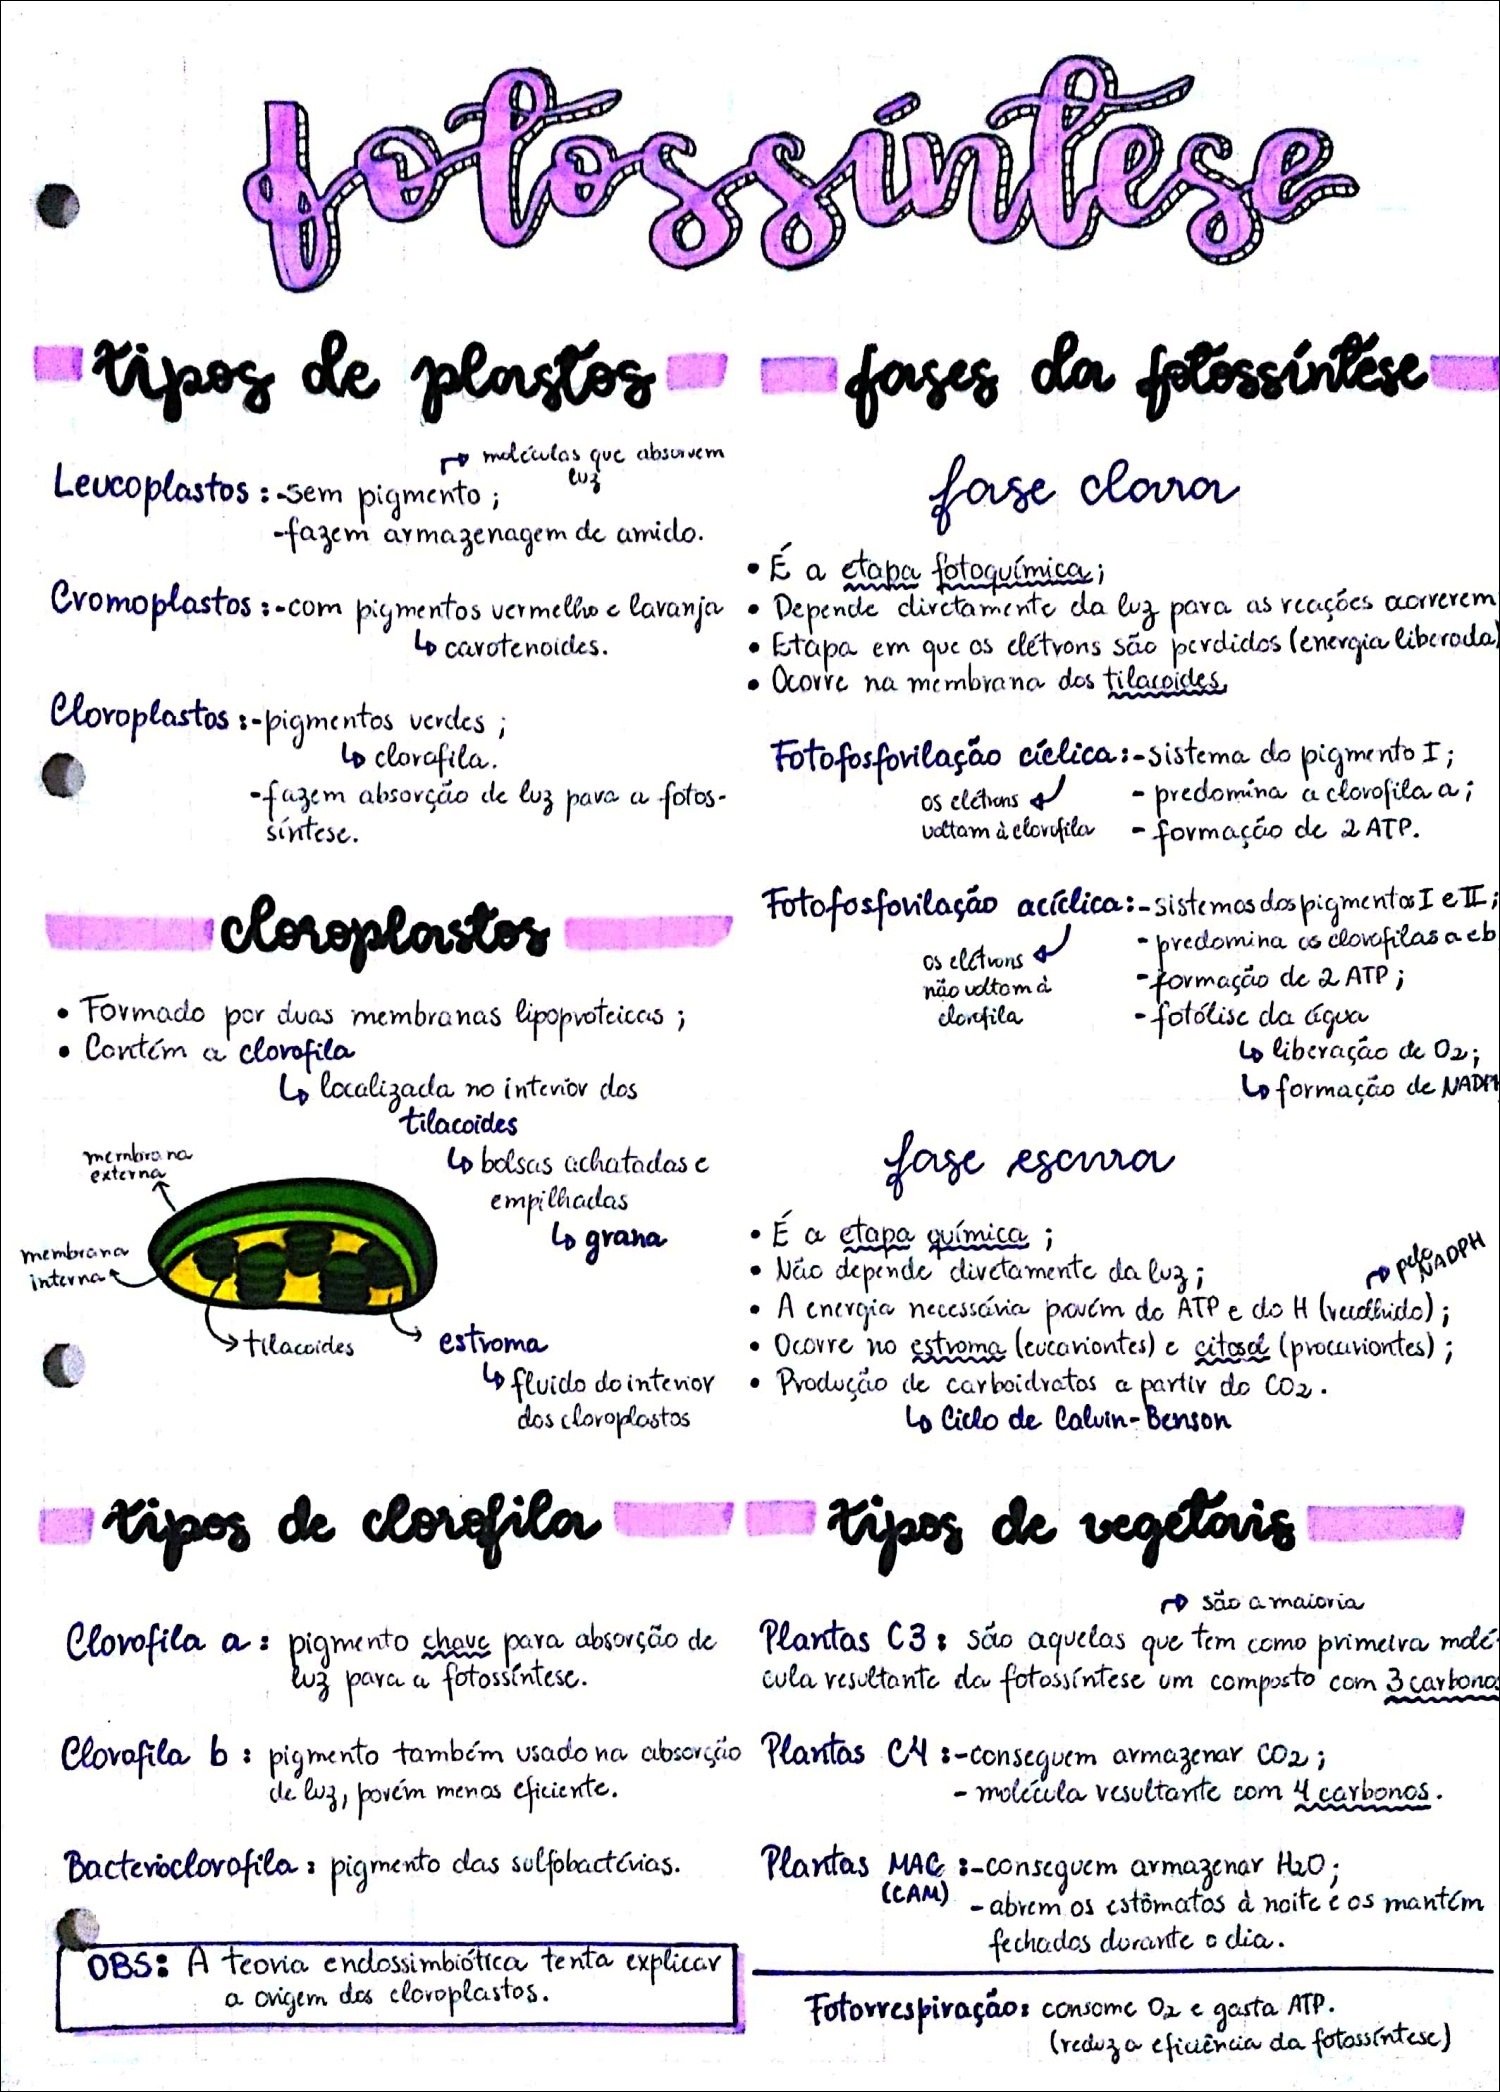 fotossíntese
tipos de plastos
moléculas que absorvem
luz
Leucoplastos: -sem pigmento;
-fazem armazenagem de amido.
Cromoplastos: -com pigmentos vermelho e laranja
↳ carotenoides.
Cloroplastos: -pigmentos verdes;
↳ clorofila.
-fazem absorção de luz para a fotos-
síntese.
cloroplastos
• Formado por duas membranas lipoproteicas;
• Contém a clorofila
↳ localizada no interior dos
tilacoides
↳ bolsas achatadas e
empilhadas
↳ grana
membrana
externa
membrana
interna
tilacoides
estroma
↳ fluido do interior
dos cloroplastos
tipos de clorofila
Clorofila a: pigmento chave para absorção de
luz para a fotossíntese.
Clorofila b: pigmento também usado na absorção
de luz, porém menos eficiente.
Bacterioclorofila: pigmento das sulfobactérias.
OBS: A teoria endossimbiótica tenta explicar
a origem dos cloroplastos.
fases da fotossíntese
fase clara
• É a etapa fotoquímica;
• Depende diretamente da luz para as reações ocorrerem
• Etapa em que os elétrons são perdidos (energia liberada)
• Ocorre na membrana dos tilacoides.
Fotofosforilação cíclica: -sistema do pigmento I;
os elétrons
voltam à clorofila
- predomina a clorofila a;
- formação de 2 ATP.
Fotofosforilação acíclica: -sistemas dos pigmentos I e II;
os elétrons
não voltam à
clorofila
- predomina as clorofilas a e b
-formação de 2 ATP;
-fotólise da água
↳ liberação de O2;
↳ formação de NADPH
fase escura
• É a etapa química;
• Não depende diretamente da luz;
pelo NADPH
• A energia necessária provém do ATP e do H (recolhido);
• Ocorre no estroma (eucariontes) e citosol (procariontes);
• Produção de carboidratos a partir do CO2.
↳ Ciclo de Calvin-Benson
tipos de vegetais
são a maioria
Plantas C3: são aquelas que tem como primeira molé-
cula resultante da fotossíntese um composto com 3 carbonos
Plantas C4: -conseguem armazenar CO2;
- molécula resultante com 4 carbonos.
Plantas MAC: -conseguem armazenar H2O;
(CAM)
- abrem os estômatos à noite e os mantém
fechados durante o dia.
Fotorrespiração: consome O2 e gasta ATP.
(reduz a eficiência da fotossíntese)